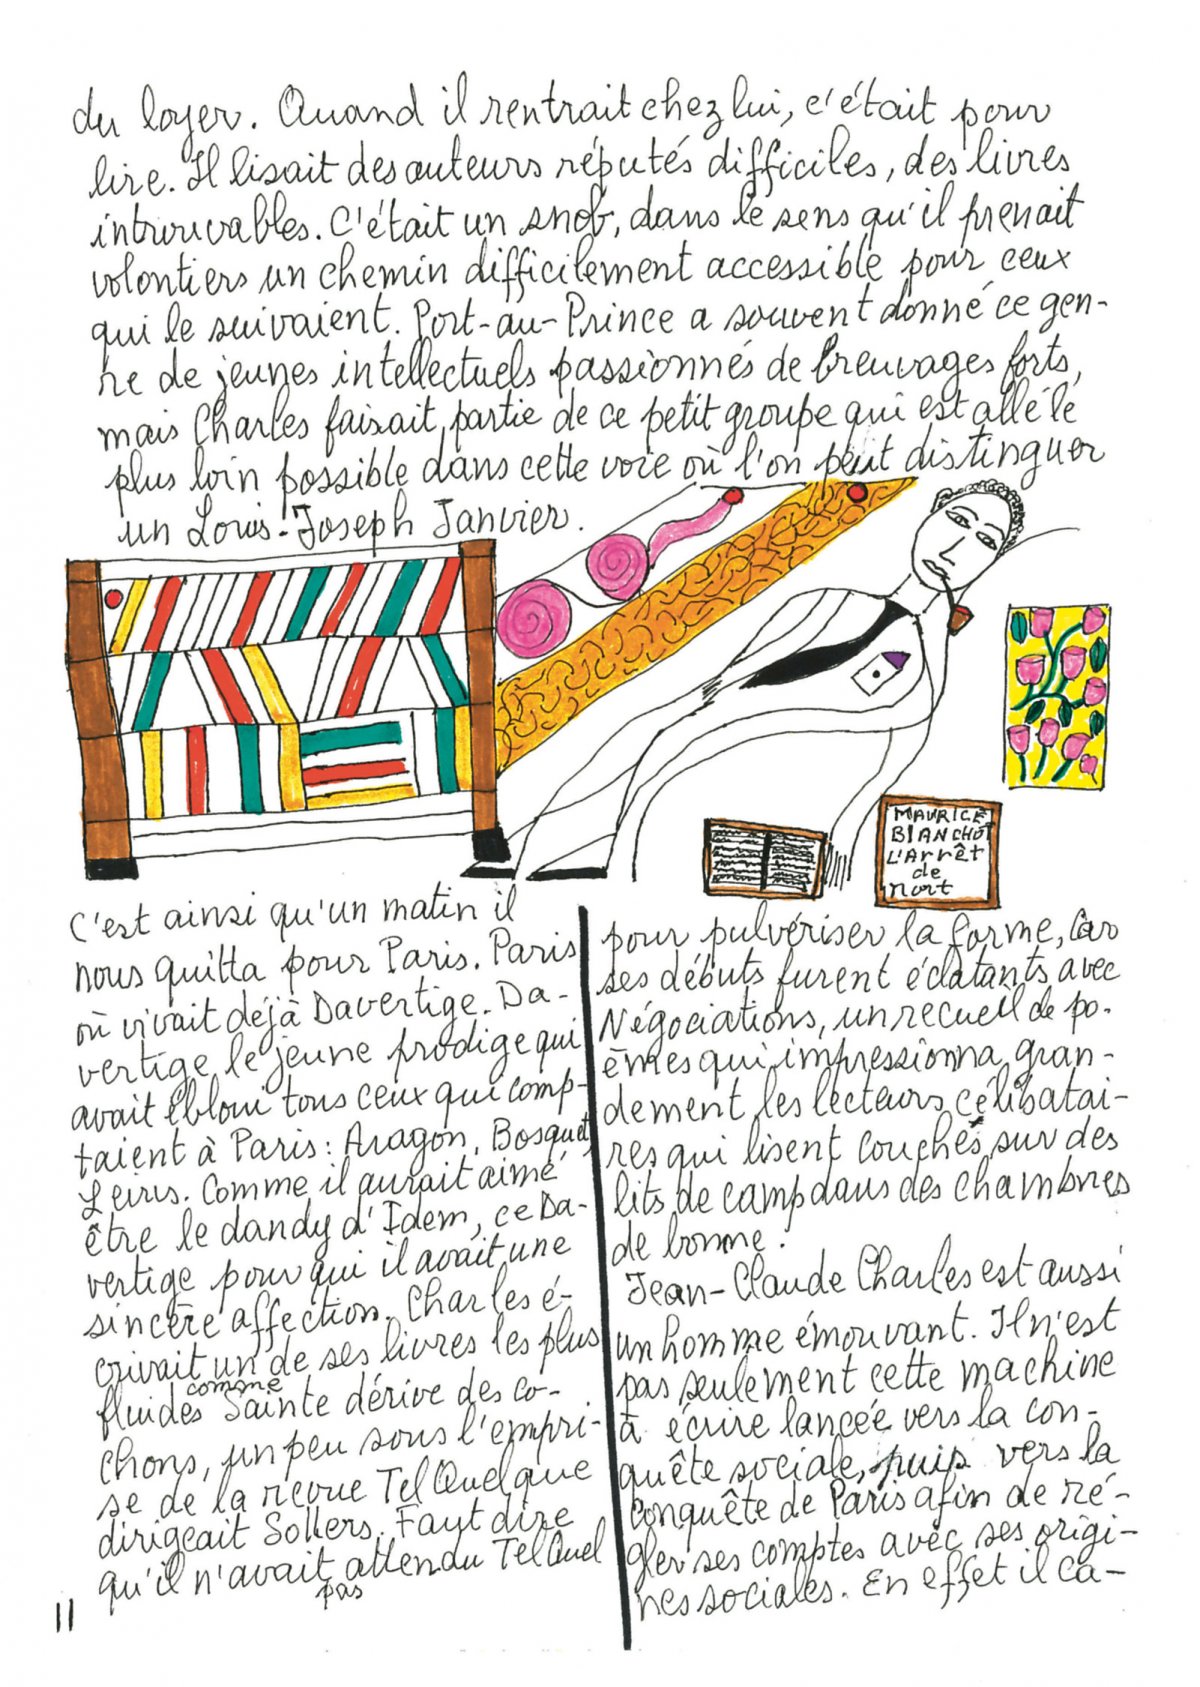 du loyer. Quand il rentrait chez lui, c'était pour
lire. Il lisait des auteurs réputés difficiles, des livres
introuvables. C'était un snob, dans le sens qu'il prenait
volontiers un chemin difficilement accessible pour ceux
qui le suivaient. Port-au-Prince a souvent donné ce gen-
re de jeunes intellectuels passionnés de breuvages forts,
mais Charles faisait partie de ce petit groupe qui est allé le
plus loin possible dans cette voie où l'on peut distinguer
un Louis-Joseph Janvier.
MAURICE
BLANCHOT
L'Arrêt
de
mort
C'est ainsi qu'un matin il
nous quitta pour Paris. Paris
où vivait déjà Davertige. Da-
vertige le jeune prodige qui
avait ébloui tous ceux qui comp-
taient à Paris: Aragon, Bosquet,
Leiris. Comme il aurait aimé
être le dandy d'Idem, ce Da-
vertige pour qui il avait une
sincère affection. Charles é-
crivait un de ses livres les plus
fluides comme Sainte dérive des co-
chons, un peu sous l'empri-
se de la revue Tel Quel que
dirigeait Sollers. Faut dire
qu'il n'avait pas attendu Tel Quel
pour pulvériser la forme, Car
ses débuts furent éclatants avec
Négociations, un recueil de po-
èmes qui impressionna gran-
dement les lecteurs célibatai-
res qui lisent couchés sur des
lits de camp dans des chambres
de bonne.
Jean-Claude Charles est aussi
un homme émouvant. Il n'est
pas seulement cette machine
à écrire lancée vers la con-
quête sociale, puis vers la
conquête de Paris afin de ré-
gler ses comptes avec ses origi-
nes sociales. En effet il ca-
11